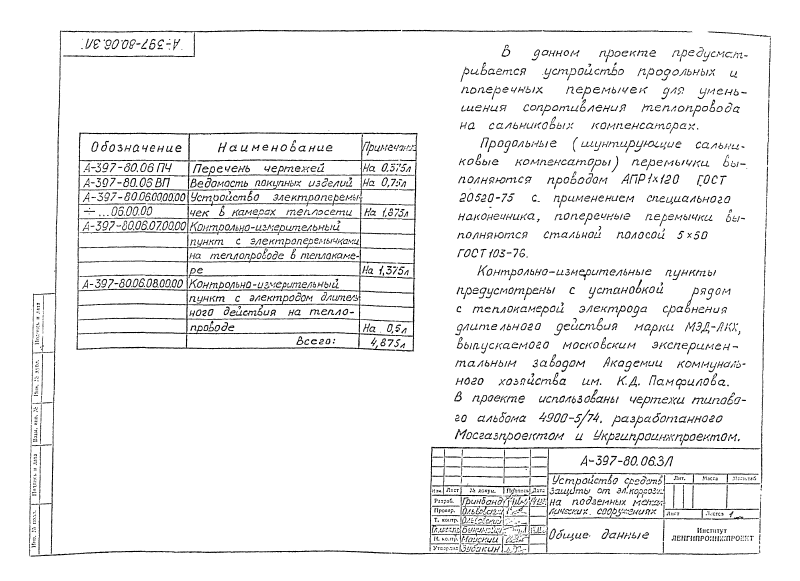 А-397-80.06.ЗЛ
Обозначение Наименование Примечан.
А-397-80.06 ПЧ Перечень чертежей На 0,375л
А-397-80.06 ВП Ведомость покупных изделий На 0,75л
А-397-80.06.00.00.00 Устройство электроперемы-
÷ ...06.00.00 чек в камерах теплосети На 1,875л
А-397-80.06.07.00.00 Контрольно-измерительный
пункт с электроперемычками
на теплопроводе в теплокаме-
ре На 1,375л
А-397-80.06.08.00.00 Контрольно-измерительный
пункт с электродом длитель-
ного действия на тепло-
проводе На 0,5л
Всего: 4,875л
В данном проекте предусмат-
ривается устройство продольных и
поперечных перемычек для умень-
шения сопротивления теплопровода
на сальниковых компенсаторах.
Продольные (шунтирующие сальни-
ковые компенсаторы) перемычки вы-
полняются проводом АПР1×120 ГОСТ
20520-75 с применением специального
наконечника, поперечные перемычки вы-
полняются стальной полосой 5×50
ГОСТ 103-76.
Контрольно-измерительные пункты
предусмотрены с установкой рядом
с теплокамерой электрода сравнения
длительного действия марки МЭД-АКХ,
выпускаемого московским эксперимен-
тальным заводом Академии коммуналь-
ного хозяйства им. К.Д. Памфилова.
В проекте использованы чертежи типово-
го альбома 4900-5/74, разработанного
Мосгазпроектом и Укргипроинжпроектом.
Подпись и дата
Инв. № дубл.
Взам. инв. №
Подпись и дата
Инв. № подл.
А-397-80.06.ЗЛ
Изм. Лист № докум. Подпись Дата
Разраб. Гринбанд
Провер. Ольховский
Т. контр. Ольховский
Н. контр. Майский
Утвердил Зубакин
Устройство средств
защиты от эл.коррозии
на подземных метал-
лических сооружениях
Лит. Масса Масштаб
Лист Листов 1
Общие данные
Институт
ЛЕНГИПРОИНЖПРОЕКТ